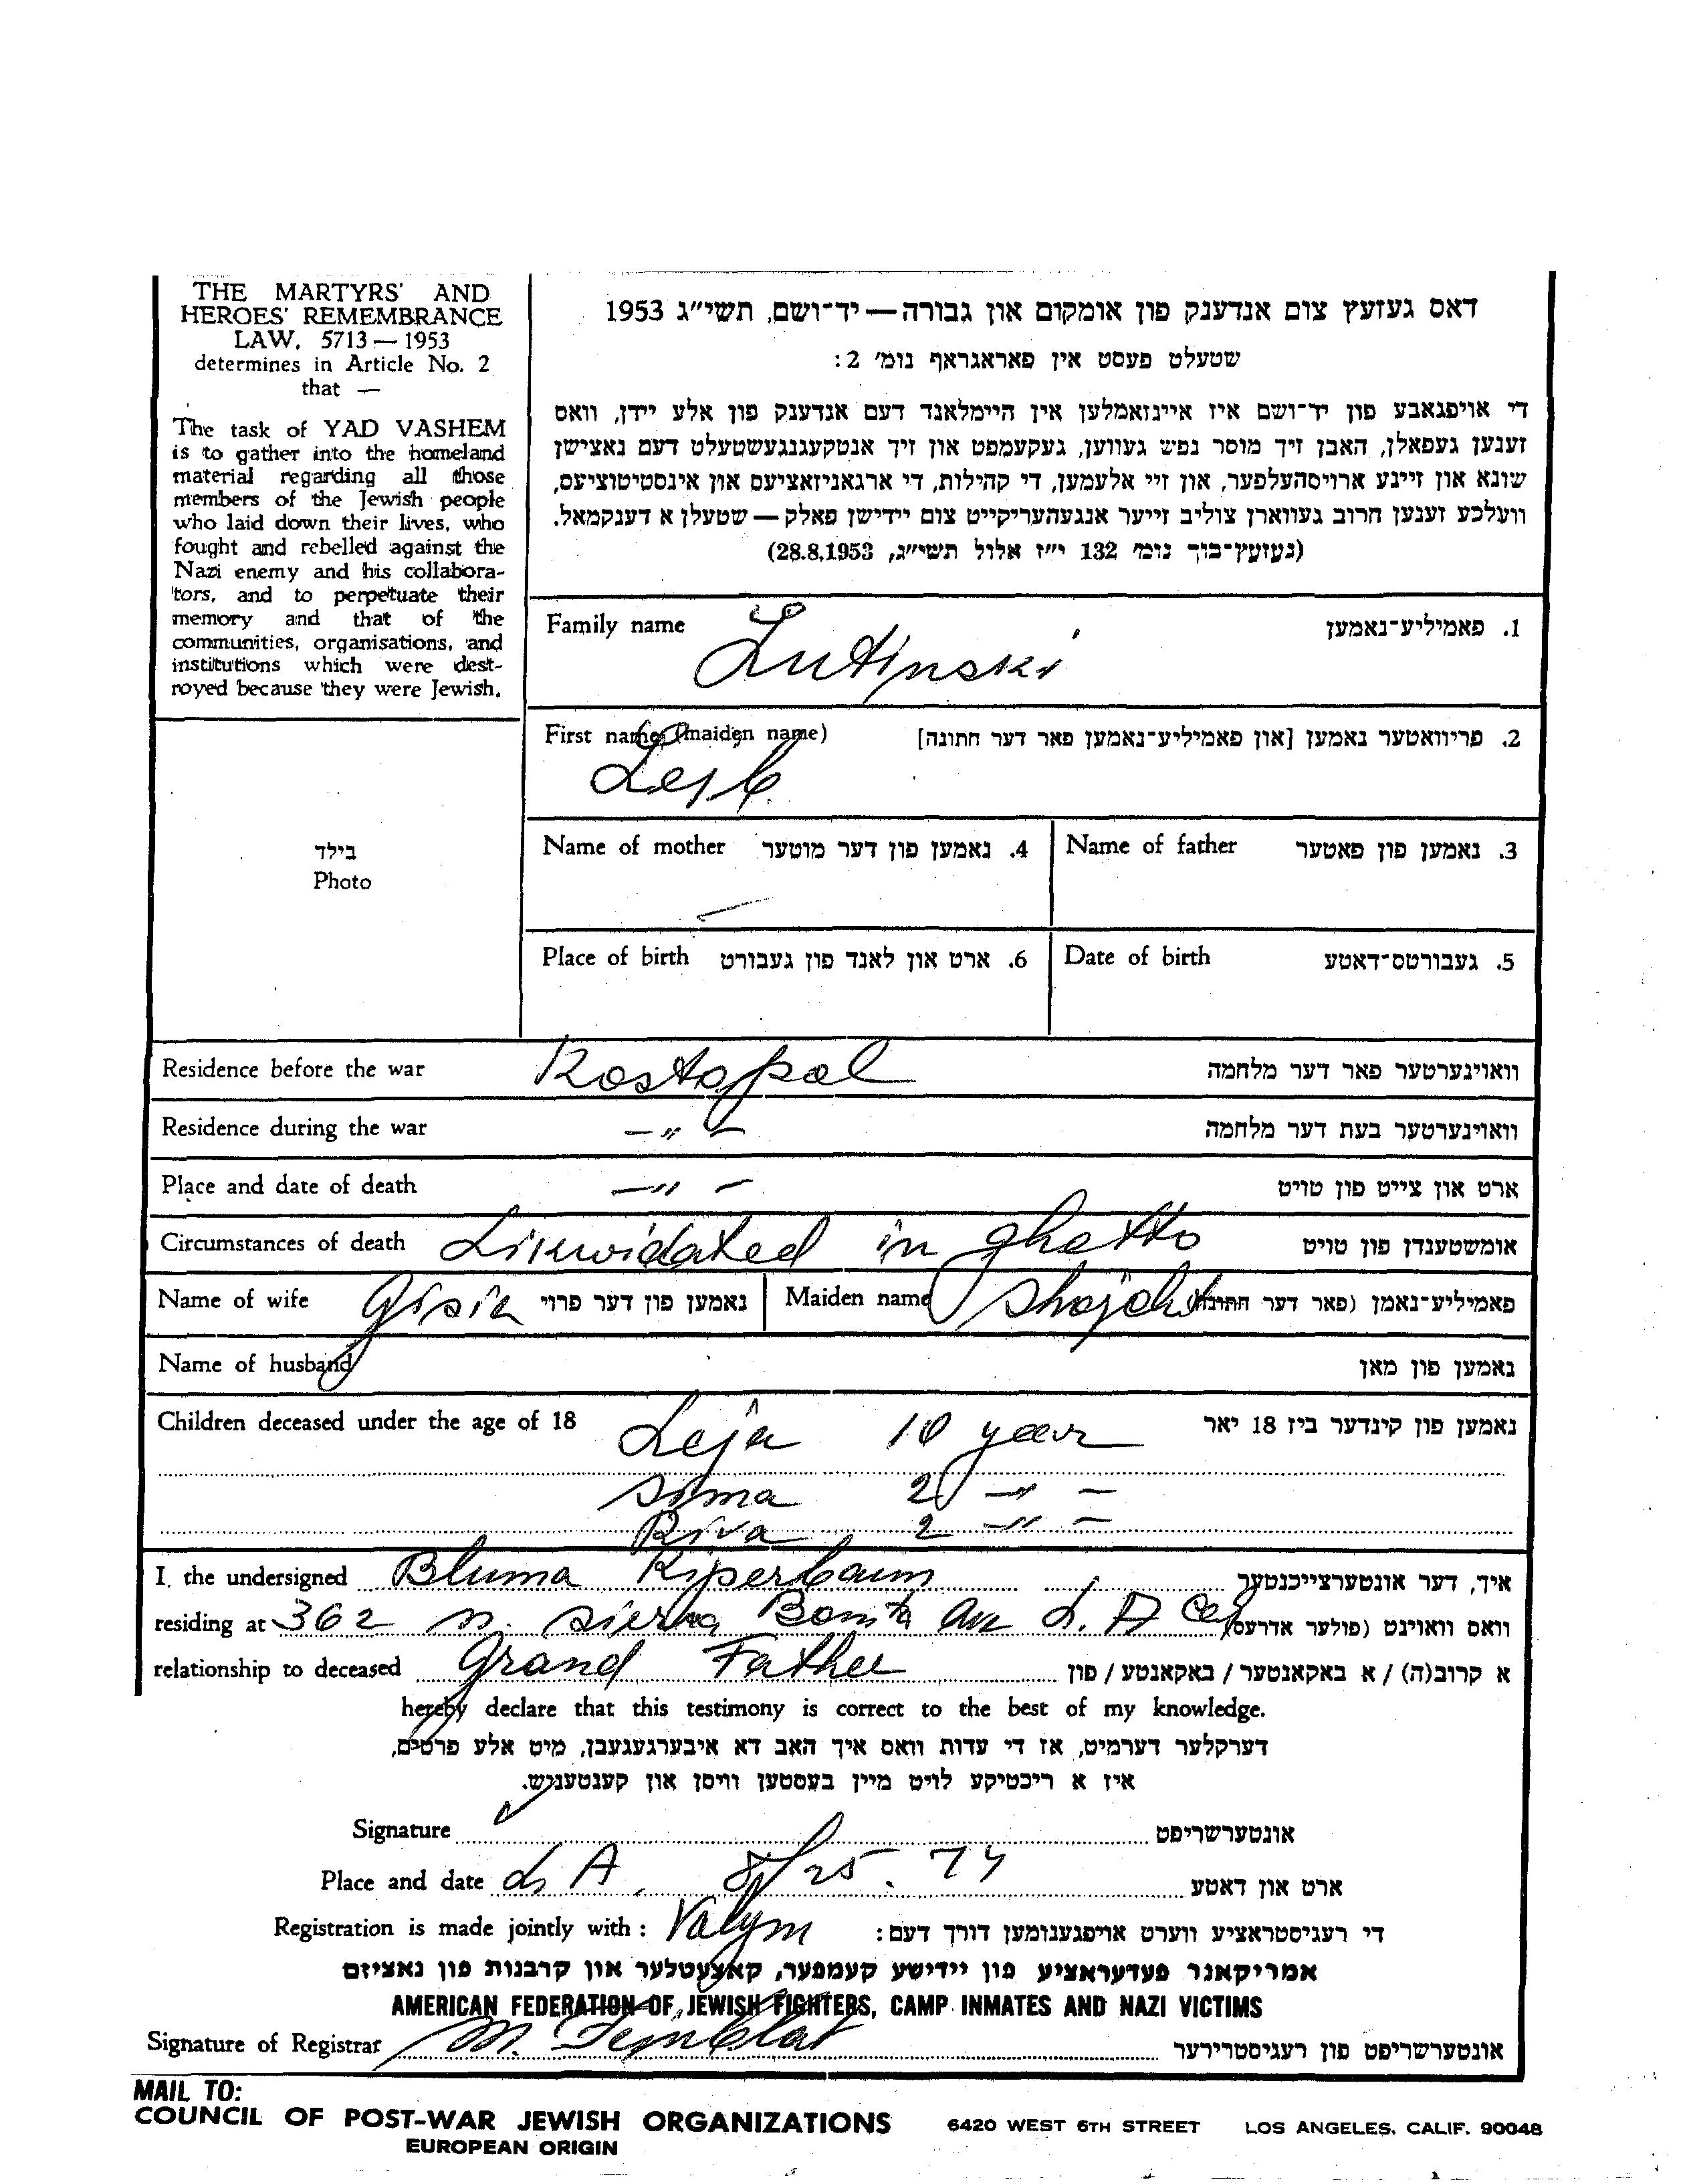 THE MARTYRS' AND
HEROES' REMEMBRANCE
LAW, 5713 — 1953
determines in Article No. 2
that —
The task of YAD VASHEM
is to gather into the homeland
material regarding all those
members of the Jewish people
who laid down their lives, who
fought and rebelled against the
Nazi enemy and his collabora-
tors, and to perpetuate their
memory and that of the
communities, organisations, and
institutions which were dest-
royed because they were Jewish.
דאס געזעץ צום אנדענק פון אומקום און גבורה — יד־ושם, תשי״ג 1953
שטעלט פעסט אין פאראגראף נומ׳ 2:
די אויפגאבע פון יד־ושם איז איינזאמלען אין היימלאנד דעם אנדענק פון אלע יידן, וואס
זענען געפאלן, האבן זיך מוסר נפש געווען, געקעמפט און זיך אנטקעגנגעשטעלט דעם נאצישן
שונא און זיינע ארויסהעלפער, און זיי אלעמען, די קהילות, די ארגאניזאציעס און אינסטיטוציעס,
וועלכע זענען חרוב געווארן צוליב זייער אנגעהעריקייט צום יידישן פאלק — שטעלן א דענקמאל.
(געזעץ־בוך נומ׳ 132 י״ז אלול תשי״ג, 28.8.1953)
Family name Lutinski 1. פאמיליע־נאמען
First name (maiden name) 2. פריוואטער נאמען [און פאמיליע־נאמען פאר דער חתונה]
Lejb.
בילד
Photo
Name of mother 4. נאמען פון דער מוטער Name of father 3. נאמען פון פאטער
Place of birth 6. ארט און לאנד פון געבורט Date of birth 5. געבורטס־דאטע
Residence before the war Kostopol וואוינערטער פאר דער מלחמה
Residence during the war — " — וואוינערטער בעת דער מלחמה
Place and date of death — " — ארט און צייט פון טויט
Circumstances of death Likwidated in ghetto אומשטענדן פון טויט
Name of wife Gisia נאמען פון דער פרוי Maiden name Shojchet פאמיליע־נאמן (פאר דער חתונה
Name of husband נאמען פון מאן
Children deceased under the age of 18 Leja 10 year נאמען פון קינדער ביז 18 יאר
Sima 2 — " —
Riva 2 — " —
I, the undersigned Bluma Kiperbaum איך, דער אונטערצייכנטער
residing at 362 N. Sierra Bonita Ave L. A Cal וואס וואוינט (פולער אדרעס
relationship to deceased Grand Father א קרוב(ה) / א באקאנטער / באקאנטע / פון
hereby declare that this testimony is correct to the best of my knowledge.
דערקלער דערמיט, אז די עדות וואס איך האב דא איבערגעגעבן, מיט אלע פרטים,
איז א ריכטיקע לויט מיין בעסטען וויסן און קענטעניש.
Signature אונטערשריפט
Place and date L. A. 8/25. 74 ארט און דאטע
Registration is made jointly with : Valym די רעגיסטראציע ווערט אויפגענומען דורך דעם:
אמריקאנר פעדעראציע פון יידישע קעמפער, קאצעטלער און קרבנות פון נאציזם
AMERICAN FEDERATION OF JEWISH FIGHTERS, CAMP INMATES AND NAZI VICTIMS
Signature of Registrar M. Fejnblat אונטערשריפט פון רעגיסטרירער
MAIL TO:
COUNCIL OF POST-WAR JEWISH ORGANIZATIONS 6420 WEST 6TH STREET LOS ANGELES, CALIF. 90048
EUROPEAN ORIGIN